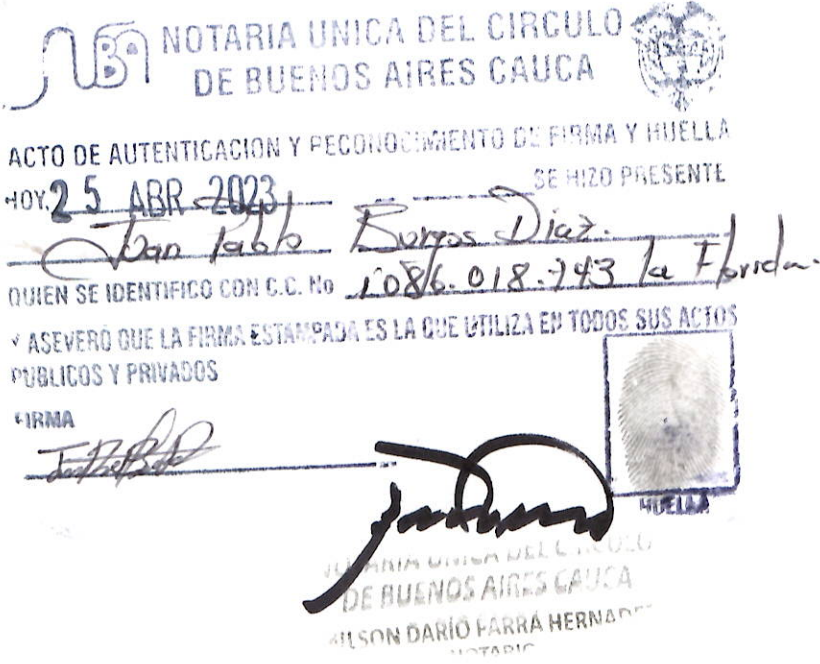 NOTARIA UNICA DEL CIRCULO
DE BUENOS AIRES CAUCA
ACTO DE AUTENTICACION Y RECONOCIMIENTO DE FIRMA Y HUELLA
HOY. 25 ABR 2023 SE HIZO PRESENTE
Juan Pablo Burgos Diaz.
QUIEN SE IDENTIFICO CON C.C. No 1086.018.743 la Florida.
Y ASEVERÓ QUE LA FIRMA ESTAMPADA ES LA QUE UTILIZA EN TODOS SUS ACTOS
PUBLICOS Y PRIVADOS
FIRMA
HUELLA
NOTARIA UNICA DEL CIRCULO
DE BUENOS AIRES CAUCA
WILSON DARÍO PARRA
NOTARIO